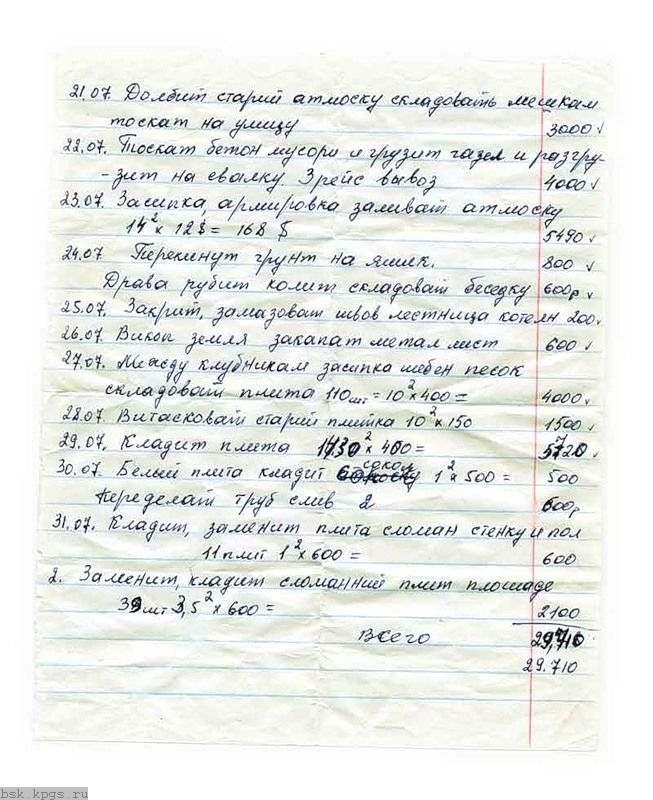 21.07. Долбит старий атмоску складоваить мешкам
тоскат на улицу 3000 ✓
22.07. Тоскат бетон мусори и грузит газел и разгру-
-зит на свалку. 3 рейс вывоз 4000 ✓
23.07. Засипка, армировка заливат атмоску
14² x 12$ = 168 $ 5490 ✓
24.07 Перекинут грунт на ящик. 800 ✓
Драва рубит колит складоваит беседку 600р ✓
25.07. Закрит, замазоват швов лестница котелн 200 ✓
26.07. Викоп земля закапат метал лист 600 ✓
27.07. Между клубникам засипка щебен песок
складоваит плита 110 шт = 10² x 400 = 4000 ✓
28.07. Витасковаит старий плитка 10² x 150 1500 ✓
29.07. Кладит плита 1430² x 400 = 5720 ✓
30.07. Белый плита кладит сокол 1² x 500 = 500
Переделаит труб слив 2 600р
31.07. Кладит, заменит плита сломан стенку и пол
11 плит 1² x 600 = 600
2. Заменит, кладит сломанний плит площаде
39 шт 3,5² x 600 = 2100
Всего 29,710
29.710
bsk.kpgs.ru